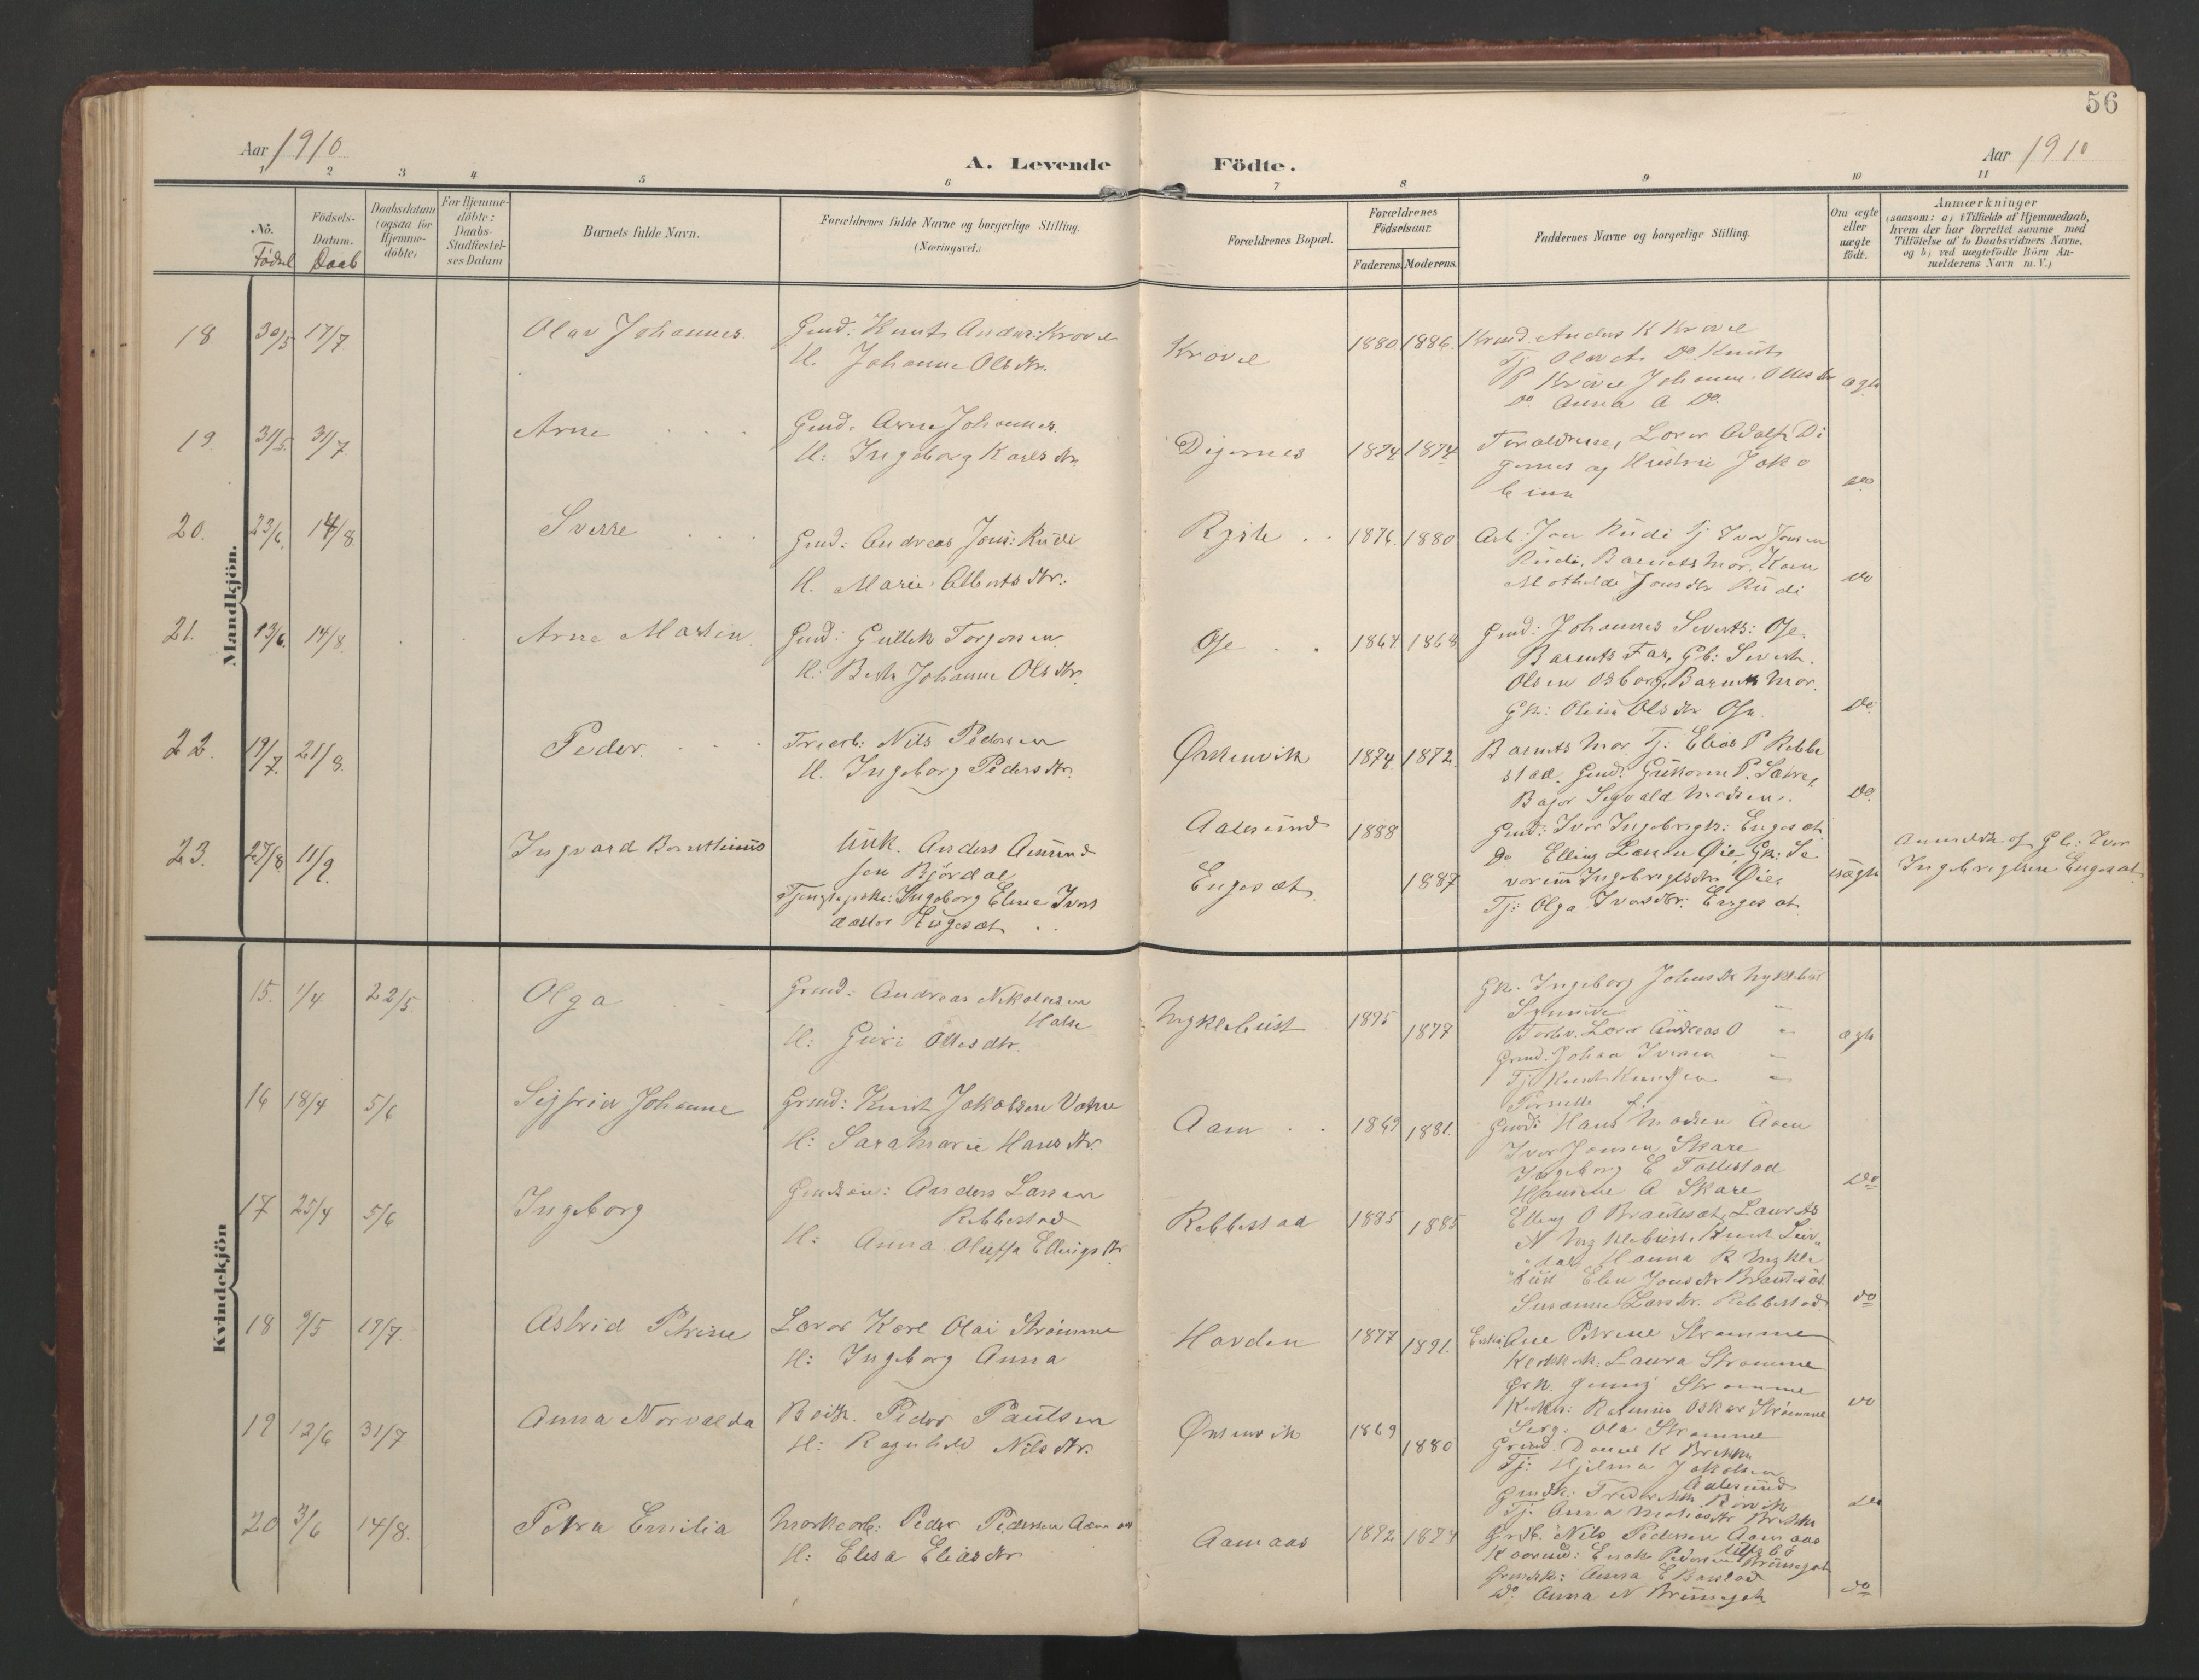 56
Aar 1910
A. Levende Födte.
Aar 1910
1 2 3 4 5 6 7 8 9 10 11
No.
Födsel
Födsels-
Datum.
Daab
Daabsdatum
(ogsaa for
Hjemme-
döbte)
For Hjemme-
döbte:
Daabs-
Stadfæstel-
ses Datum
Barnets fulde Navn.
Forældrenes fulde Navne og borgerlige Stilling.
(Næringsvei.)
Forældrenes Bopæl.
Forældrenes
Födselsaar.
Faderens. Moderens.
Faddernes Navne og borgerlige Stilling.
Om ægte
eller
uægte
födt.
Anmærkninger
(saasom: a) i Tilfælde af Hjemmedaab,
hvem der har forrettet samme med
Tilföielse af to Daabsvidners Navne,
og b) ved uægtefödte Börn An-
melderens Navn m. V.)
Mandkjön.
18 30/5 17/7 Olav Johannes
Gmd: Knut Anders: Krøvel
H. Johanne Olsdtr.
Krøvel 1880 1886
Anders K Krøvel
Tj. Do. Knut
Krøvel Johanne
Do. Anna A Do.
ægte
19. 31/5. 31/7. Arne
Gmd. Arne Johannes.
H: Ingeborg Karlsdtr.
Digernes 1874 1874
Forældrene, Lærer Adolf Di
gernes og Hustru Jako
bine
do
20. 23/6. 14/8 Sverre
Gmd: Andreas Jons: Rüdi
H. Marie Albertsdtr:
Rjste 1876 1880
Arb: Jon Rüdi Tj Ivar Jonsen
Rüdi, Barnets Mor, Karen
Mathilde Jonsdtr Rüdi
do
21. 13/6. 14/8. Arne Martin
Gmd: Gullik Torgersen
H: Berte Johanne Olsdtr.
Ose 1864 1868
Gmd: Johannes Siverts: Ose.
Barnets Far, Gb: Sivert
Olsen Osborg, Barnets Mor.
Gk: Oline Olsdtr Ose.
Do.
22. 19/7. 21/8. Peder
Nils Pedersen
H. Ingeborg Pedersdtr.
Ørstenvik 1874. 1872.
Barnets Mor, Tj: Elias P Rebbe
stad, Gmd: P. Sætre,
Sigvald Madsen.
Do.
23. 27/8 11/9. Ingvard Bernthinus
Unk. Anders Amund
sen Bjørdal
Tjenestepike: Ingeborg Eline Ivers
datter Engeset
Aalesund 1888
Engeset 1887
Gmd: Iver Ingebrigts: Engeset
Do Elling Larsen Øie, Gk: Se
verine Ingebrigtsdtr Øie,
Tj: Olga Iversdtr: Engeset
uægte
Anmeldt af Gb: Iver
Ingebrigtsen Engeset.
Kvindekjön
15. 1/4 22/5 Olga
Grmd: Andreas Nikolaisen
Hatse
H: Guri Ottesdtr.
Myklebüst 1875
1877
Gk. Ingeborg Johnsdtr Myklebüst
Lærer Andreas O "
Grmd. Johan Iversen "
Tj Knut Knutsen "
Pernille
ægte
16 18/4 5/6 Sigfrid Johanne
Grmd: Knut Jakobsen Vatne
H: Sara Marie Hansdtr.
Aam 1869 1881.
Gmd: Hans Madsen Aam
Iver Jonsen Skare
Ingeborg E Follestad
A Skare
Do
17 25/4 5/6 Ingeborg
Gmdsøn: Anders Larsen
Rebbestad
H: Anna Oluffa Ellingsdtr.
Rebbestad 1885 1885
Elling O Brautaset, Laurits
N Myklebüst, Knut Leir
dal Hanna R Mykle
büst Elen Jonsdtr Brautaset
Susanne Larsdtr. Rebbestad
do
18 9/5 17/7. Astrid Petrine
Lærer Karl Olai Strømme
H: Ingeborg Anna
Hovden 1877 1891.
Enke Ane Petrine Strømme
Laura Strømme
Jenny Strømme
Rasmus Oskar Strømme
Serg. Ola Strømme
do
19 12/6 31/7 Anna Norvalda
Peder Paulsen
H: Ragnhild Nilsdtr.
Ørstenvik 1869
1880
Grmd. Daniel K Brekke
Tj: Hjelma Jakobsen
Aalesund
Rørvik
Tj. Anna Brekke
do
20 3/6 14/8. Petra Emilia
Peder Pedersen Aamaas
H: Elesa Eliasdtr
Aamaas 1872 1874
Nils Pedersen Aamaas
Enok Pedersen
Anna E Barstad
Do. Anna N
do